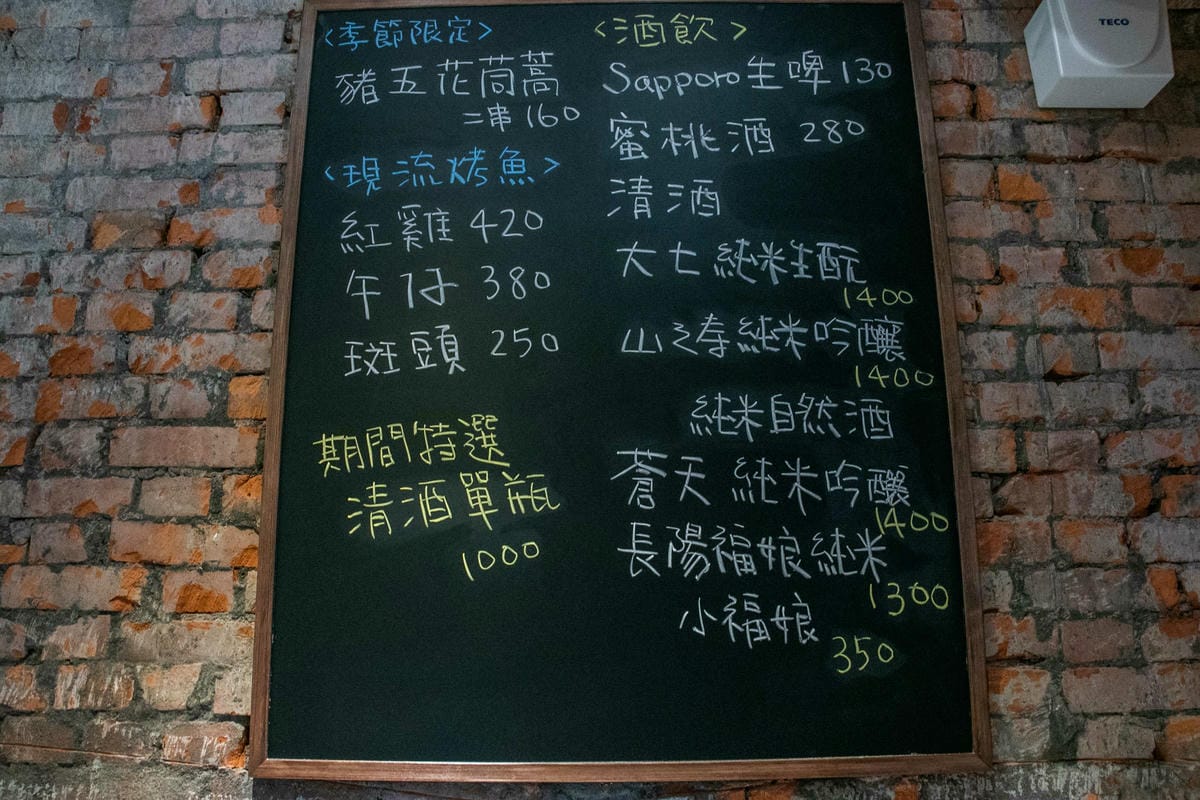 <季節限定>
豬五花茼蒿
二串160
<現流烤魚>
紅雞 420
午仔 380
斑頭 250
期間特選
清酒單瓶
1000
<酒飲>
Sapporo生啤130
蜜桃酒 280
清酒
大七 純米生酛
1400
山之寿純米吟釀
1400
純米自然酒
蒼天 純米吟釀
1400
長陽福娘純米
1300
小福娘
350
TECO